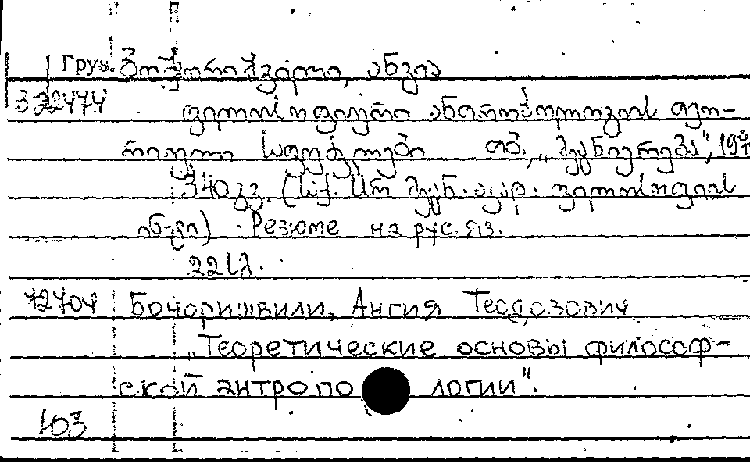 Груз. ბოჭორიშვილი, ანგია
322474
ფილოსოფიური ანთროპოლოგიის თეო-
რიული საფუძვლები თბ., „მეცნიერება", 197
340 გვ. (საქ. სსრ მეცნ. აკად. ფილოსოფიის
ინ-ტი) Резюме на рус. яз.
72704 Бочоришвили, Ангия Теодозович
„Теоретические основы философ-
ской антропо логии".
103